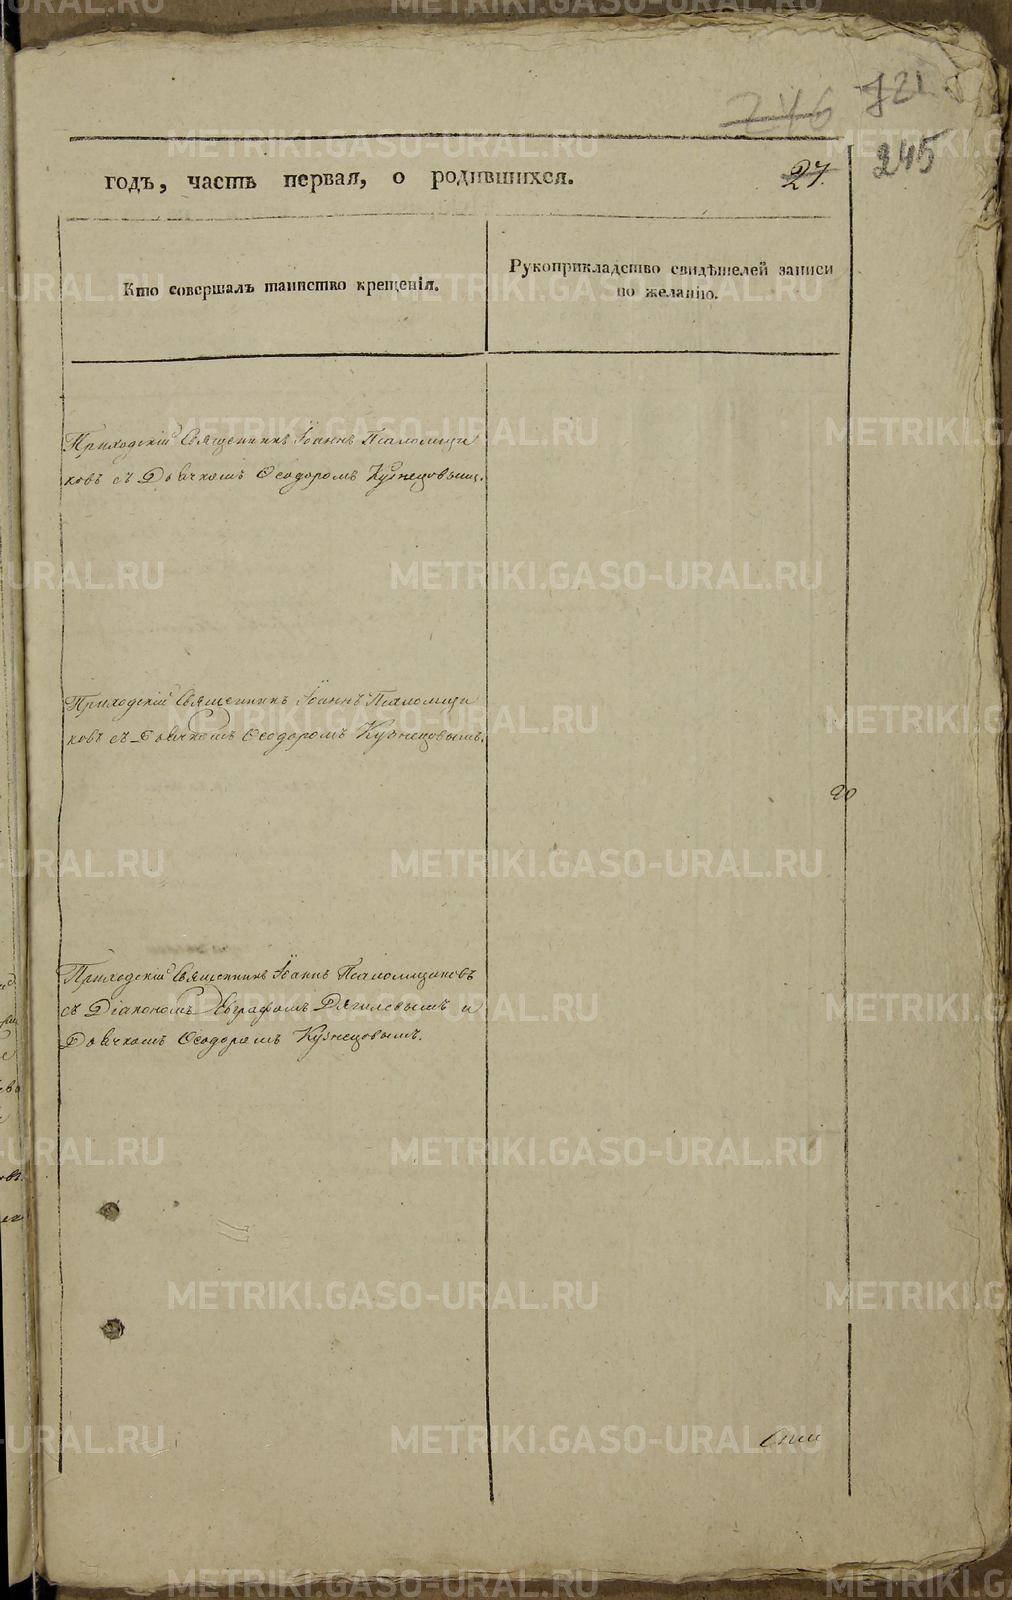 246
245
годъ, часть первая, о родившихся.
27.
Кто совершалъ таинство крещенія.
Рукоприкладство свидѣтелей записи
по желанію.
Приходскій Священникъ Іоаннъ Псаломщи
ковъ съ Дьячкомъ Ѳеодоромъ Кузнецовымъ.
Приходскій Священникъ Іоаннъ Псаломщи
ковъ съ Дьячкомъ Ѳеодоромъ Кузнецовымъ.
Приходскій Священникъ Іоаннъ Псаломщиковъ
съ Діакономъ Евграфомъ Дягилевымъ и
Дьячкомъ Ѳеодоромъ Кузнецовымъ.
METRIKI.GASO-URAL.RU